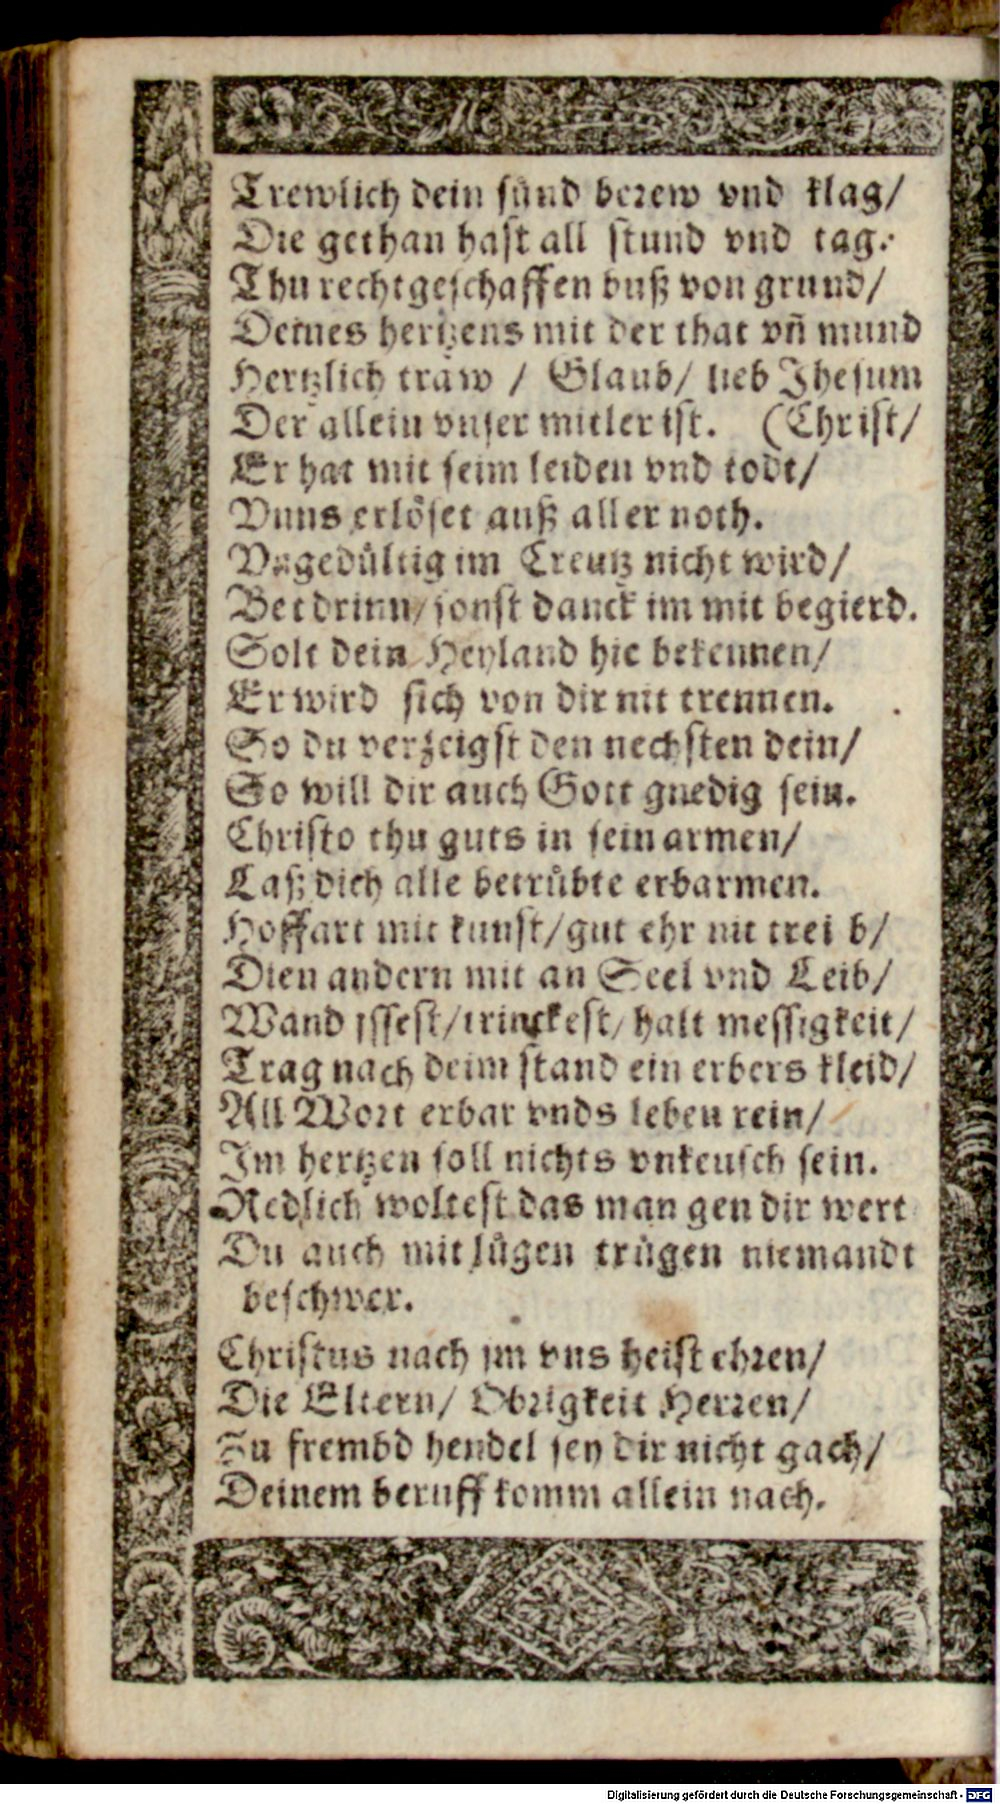 Trewlich dein sünd berew vnd klag/
Die gethan hast all stund vnd tag.
Thu rechtgeschaffen buß von grund/
Deines hertzens mit der that vñ mund
Hertzlich traw / Glaub/ lieb Jhesum
Der allein vnser mitler ist. (Christ/
Er hat mit seim leiden vnd todt/
Vnns erlöset auß aller noth.
Vngedültig im Creutz nicht wird/
Bet drinn/ sonst danck im mit begierd.
Solt dein Heyland hie bekennen/
Er wird sich von dir nit trennen.
So du verzeigst den nechsten dein/
So will dir auch Gott gnedig sein.
Christo thu guts in sein armen/
Laß dich alle betrübte erbarmen.
Hoffart mit kunst/gut ehr nit trei b/
Dien andern mit an Seel vnd Leib/
Wand jssest/trinckest/ halt messigkeit/
Trag nach deim stand ein erbers kleid/
All Wort erbar vnds leben rein/
Jm hertzen soll nichts vnkeusch sein.
Redlich woltest das man gen dir wert
Du auch mit lügen trügen niemandt
beschwer.
Christus nach jm vns heist ehren/
Die Eltern/ Obrigkeit Herren/
Zu frembd hendel sey dir nicht gach/
Deinem beruff komm allein nach.
Digitalisierung gefördert durch die Deutsche Forschungsgemeinschaft - DFG